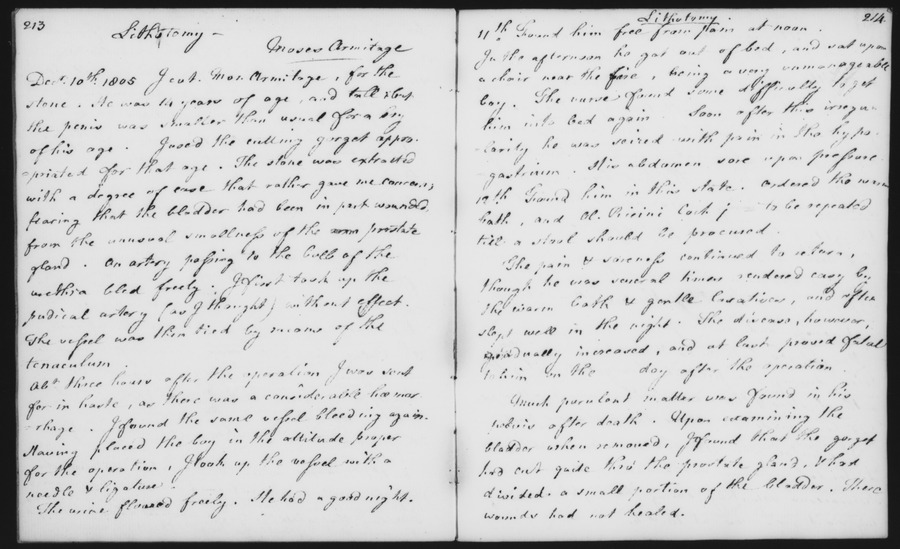 213
Lithotomy –
Moses Armitage
Dec. 10th 1805 I cut Mos. Armitage, for the
stone. He was 14 years of age, and tall but
the penis was smaller than usual for a boy
of his age. I used the cutting gorget appro-
-priated for that age. The stone was extracted
with a degree of ease that rather gave me concern;
fearing that the bladder had been in part wounded
from the unusual smallness of the prostate
gland. An artery passing to the bulb of the
urethra bled freely. I first took up the
pudical artery (as I thought) without effect.
The vessel was then tied by means of the
tenaculum.
Abt three hours after the operation I was sent
for in haste, as there was a considerable hæmor-
-rhage. I found the same vessel bleeding again.
Having placed the boy in the attitude proper
for the operation, I took up the vessel with a
needle & ligature.
The urine flowed freely. He had a good night.
214
Lithotomy.
11th Found him free from pain at noon.
In the afternoon he got out of bed, and sat upon
a chair near the fire, being a very unmanageable
boy. The nurse found some difficulty to get
him into bed again. Soon after this irregu-
-larity he was seized with pain in the hypo-
-gastrium. His abdomen sore upon pressure.
12th Found him in this state. Ordered the warm
bath, and Ol. Ricini Coch j to be repeated
till a stool should be procured.
The pain & soreness continued to return,
though he was several times rendered easy by
the warm bath & gentle laxatives, and often
slept well in the night. The disease, however,
gradually increased, and at last proved fatal
to him on the day after the operation.
Much purulent matter was found in his
pelvis after death. Upon examining the
bladder when removed, I found that the gorget
had cut quite thro' the prostate gland, & had
divided a small portion of the bladder. These
wounds had not healed.